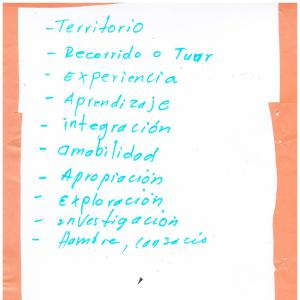 - Territorio
- Recorrido o Tour
- Experiencia
- Aprendizaje
- integración
- amabilidad
- Apropiación
- Exploración
- investigación
- Hambre, cansacio